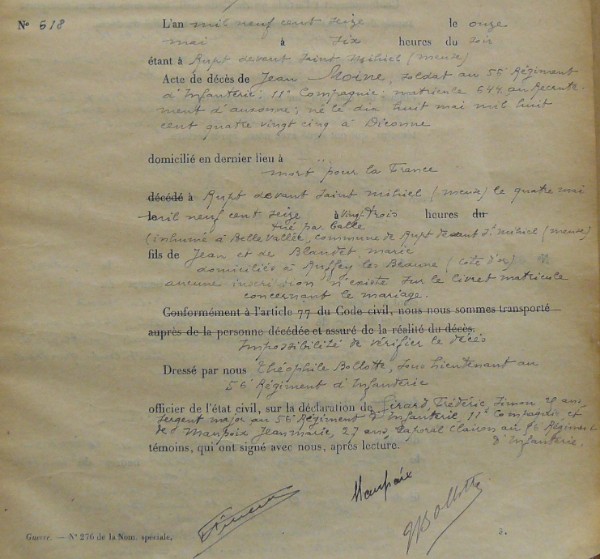 N° 618
L'an mil neuf cent seize le onze
mai à dix heures du soir
étant à Rupt devant Saint Mihiel (Meuse)
Acte de décès de Jean Moine, soldat au 56e Régiment
d'Infanterie; 11e Compagnie; matricule 644 au Recrute-
ment d'Auxonne; né le dix huit mai mil huit
cent quatre vingt cinq à Diconne
domicilié en dernier lieu à ...
mort pour la France
décédé à Rupt devant Saint Mihiel (Meuse) le quatre mai
le mil neuf cent seize à vingt trois heures du
tué par balle
(inhumé à Belle Vallée, commune de Rupt devant St Mihiel (Meuse)
fils de Jean et de Blandet marie
domiciliés à Ruffey les Beaune (Côte d'or)
aucune inscription n'existe sur le livret matricule
concernant le mariage.
Conformément à l'article 77 du Code civil, nous nous sommes transporté
auprès de la personne décédée et assuré de la réalité du décès.
Impossibilité de vérifier le décès
Dressé par nous Théophile Bollotte, Sous Lieutenant au
56e Régiment d'Infanterie
officier de l'état civil, sur la déclaration de Girard, Frédéric, Simon ans,
Sergent major au 56e Régiment d'Infanterie 11e Compagnie et
de Maupoix Jean marie, 27 ans, Caporal Clairon au 56 Régiment
d'Infanterie.
témoins, qui ont signé avec nous, après lecture.
Maupoix
Bollotte
Guerre. — N° 276 de la Nom. spéciale.